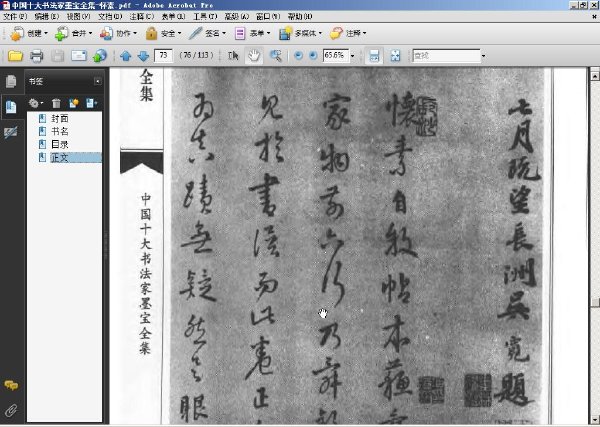 中国十大书法家墨宝全集-怀素.pdf - Adobe Acrobat Pro
文件(F) 编辑(E) 视图(V) 文档(D) 注释(C) 表单(R) 工具(T) 高级(A) 窗口(W) 帮助(H)
创建 合并 协作 安全 签名 表单 多媒体 注释
73 (76 / 113) 65.6% 查找
书签
封面
书名
目录
正文
全集
中国十大书法家墨宝全集
七月既望長洲吳寬題
懷素自敘帖本蘇
家物前六行乃舜
見於書譜而此卷正
為真蹟無疑然具眼